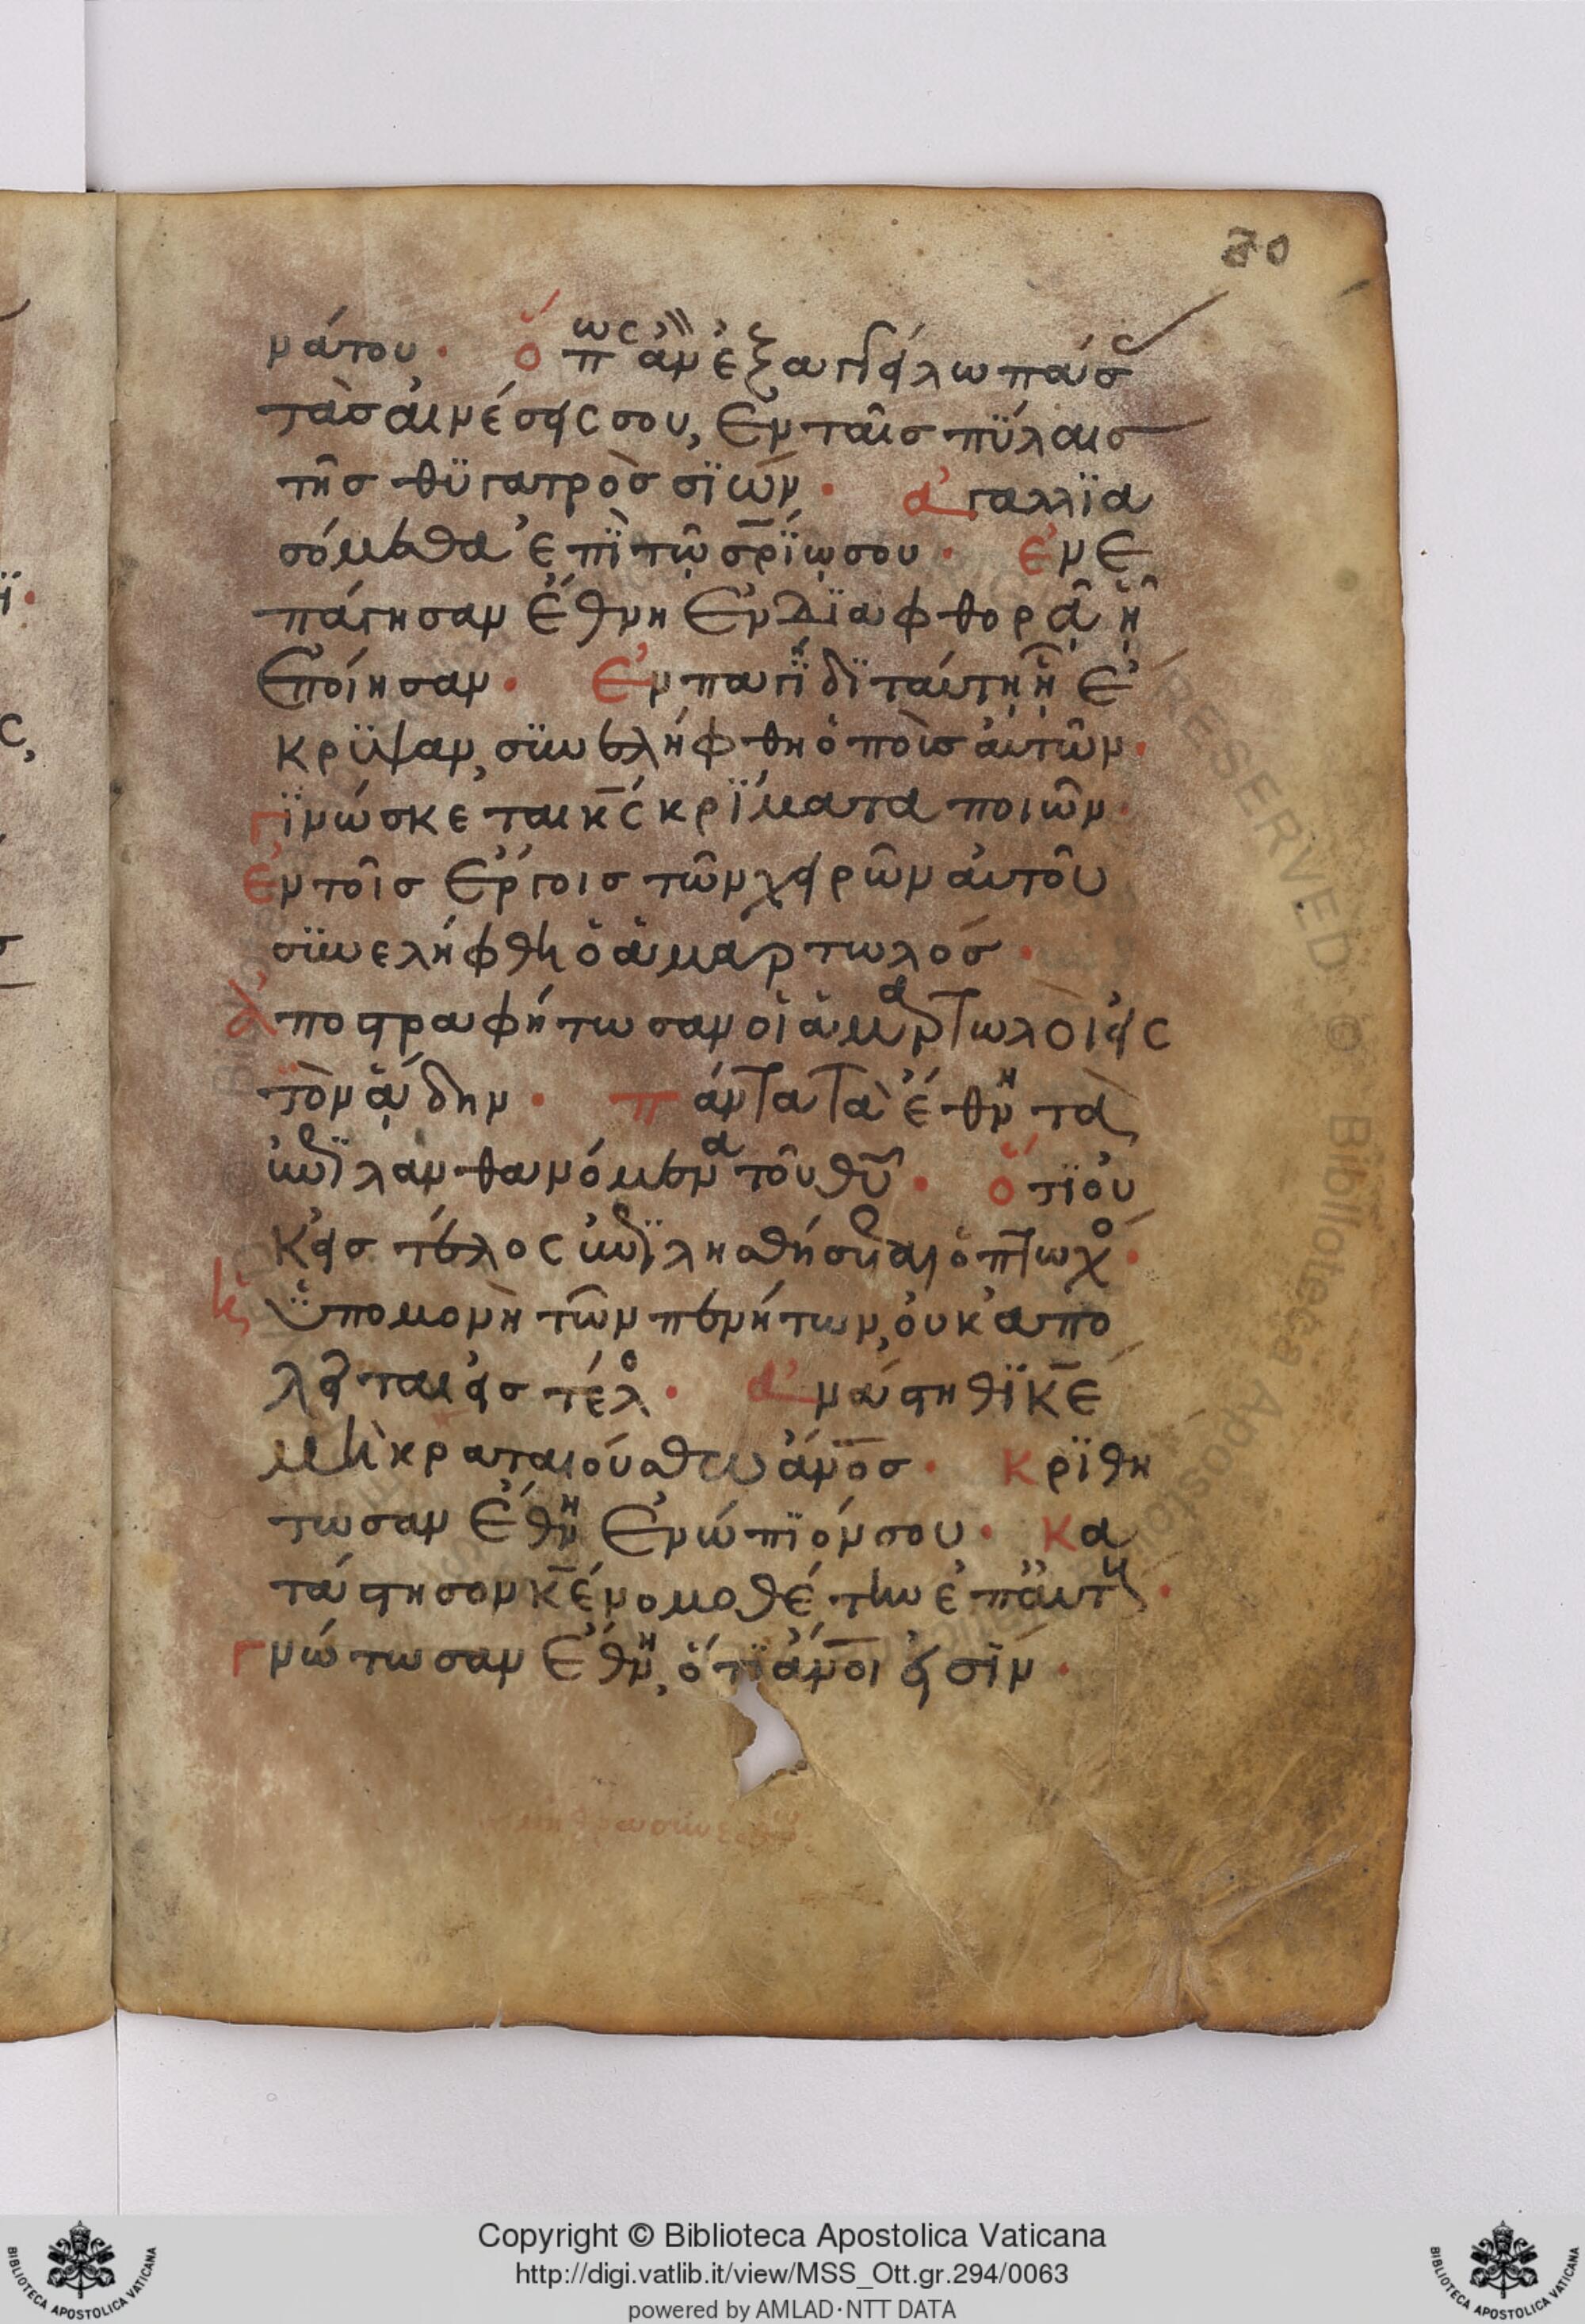 20
νάτου· ὅπως ἂν ἐξαγγείλω πάσ
τὰσ αἰνέσεις σου, ἐν ταῖσ πϋλαισ
τῆσ θϋγατρὸσ σϊών· ἀγαλλϊα
σόμεθα ἐπῒ τῷ σρ̅ΐῳ σου· ἐνε
πάγησαν ἔθνη ἐν δϊαφθορᾷ ᾗ
ἐποίησαν· ἐν παγΐδϊ ταύτῃ ᾗ ἔ
κρϋψαν, σϋνελήφθη ὁ ποὺσ αὐτῶν·
γϊνώσκεται κ̅ς κρΐματα ποιῶν·
ἐν τοῖσ ἔργοισ τῶν χειρῶν αὐτοῦ
σϋνελήφθη ὁ ἁμαρτωλόσ·
ἀποστραφήτωσαν οἱ ἁμαρτωλοὶ εἰς
τὸν ᾅδην· πάντα τὰ ἔθνη τὰ
ἐπϊλανθανόμενα τοῦ θ̅υ· ὅτϊ οὐ
κ εἰσ τέλος ἐπϊλησθήσεται ὁ πτωχὸ·
ὑπομονὴ τῶν πενήτων, οὐκ ἀπο
λεῖται εἰσ τέλο· ἀνάστηθϊ κ̅ε
μὴ κραταιούσθω ἄν̅οσ· κρϊθή
τωσαν ἔθνη ἐνώπϊόν σου· κα
τάστησον κ̅ε νομοθέτην ἐπ' αὐτούς·
γνώτωσαν ἔθνη, ὅτϊ ἄν̅οι εἰσίν·
Copyright © Biblioteca Apostolica Vaticana
http://digi.vatlib.it/view/MSS_Ott.gr.294/0063
powered by AMLAD·NTT DATA
BIBLIOTECA APOSTOLICA VATICANA
BIBLIOTECA APOSTOLICA VATICANA